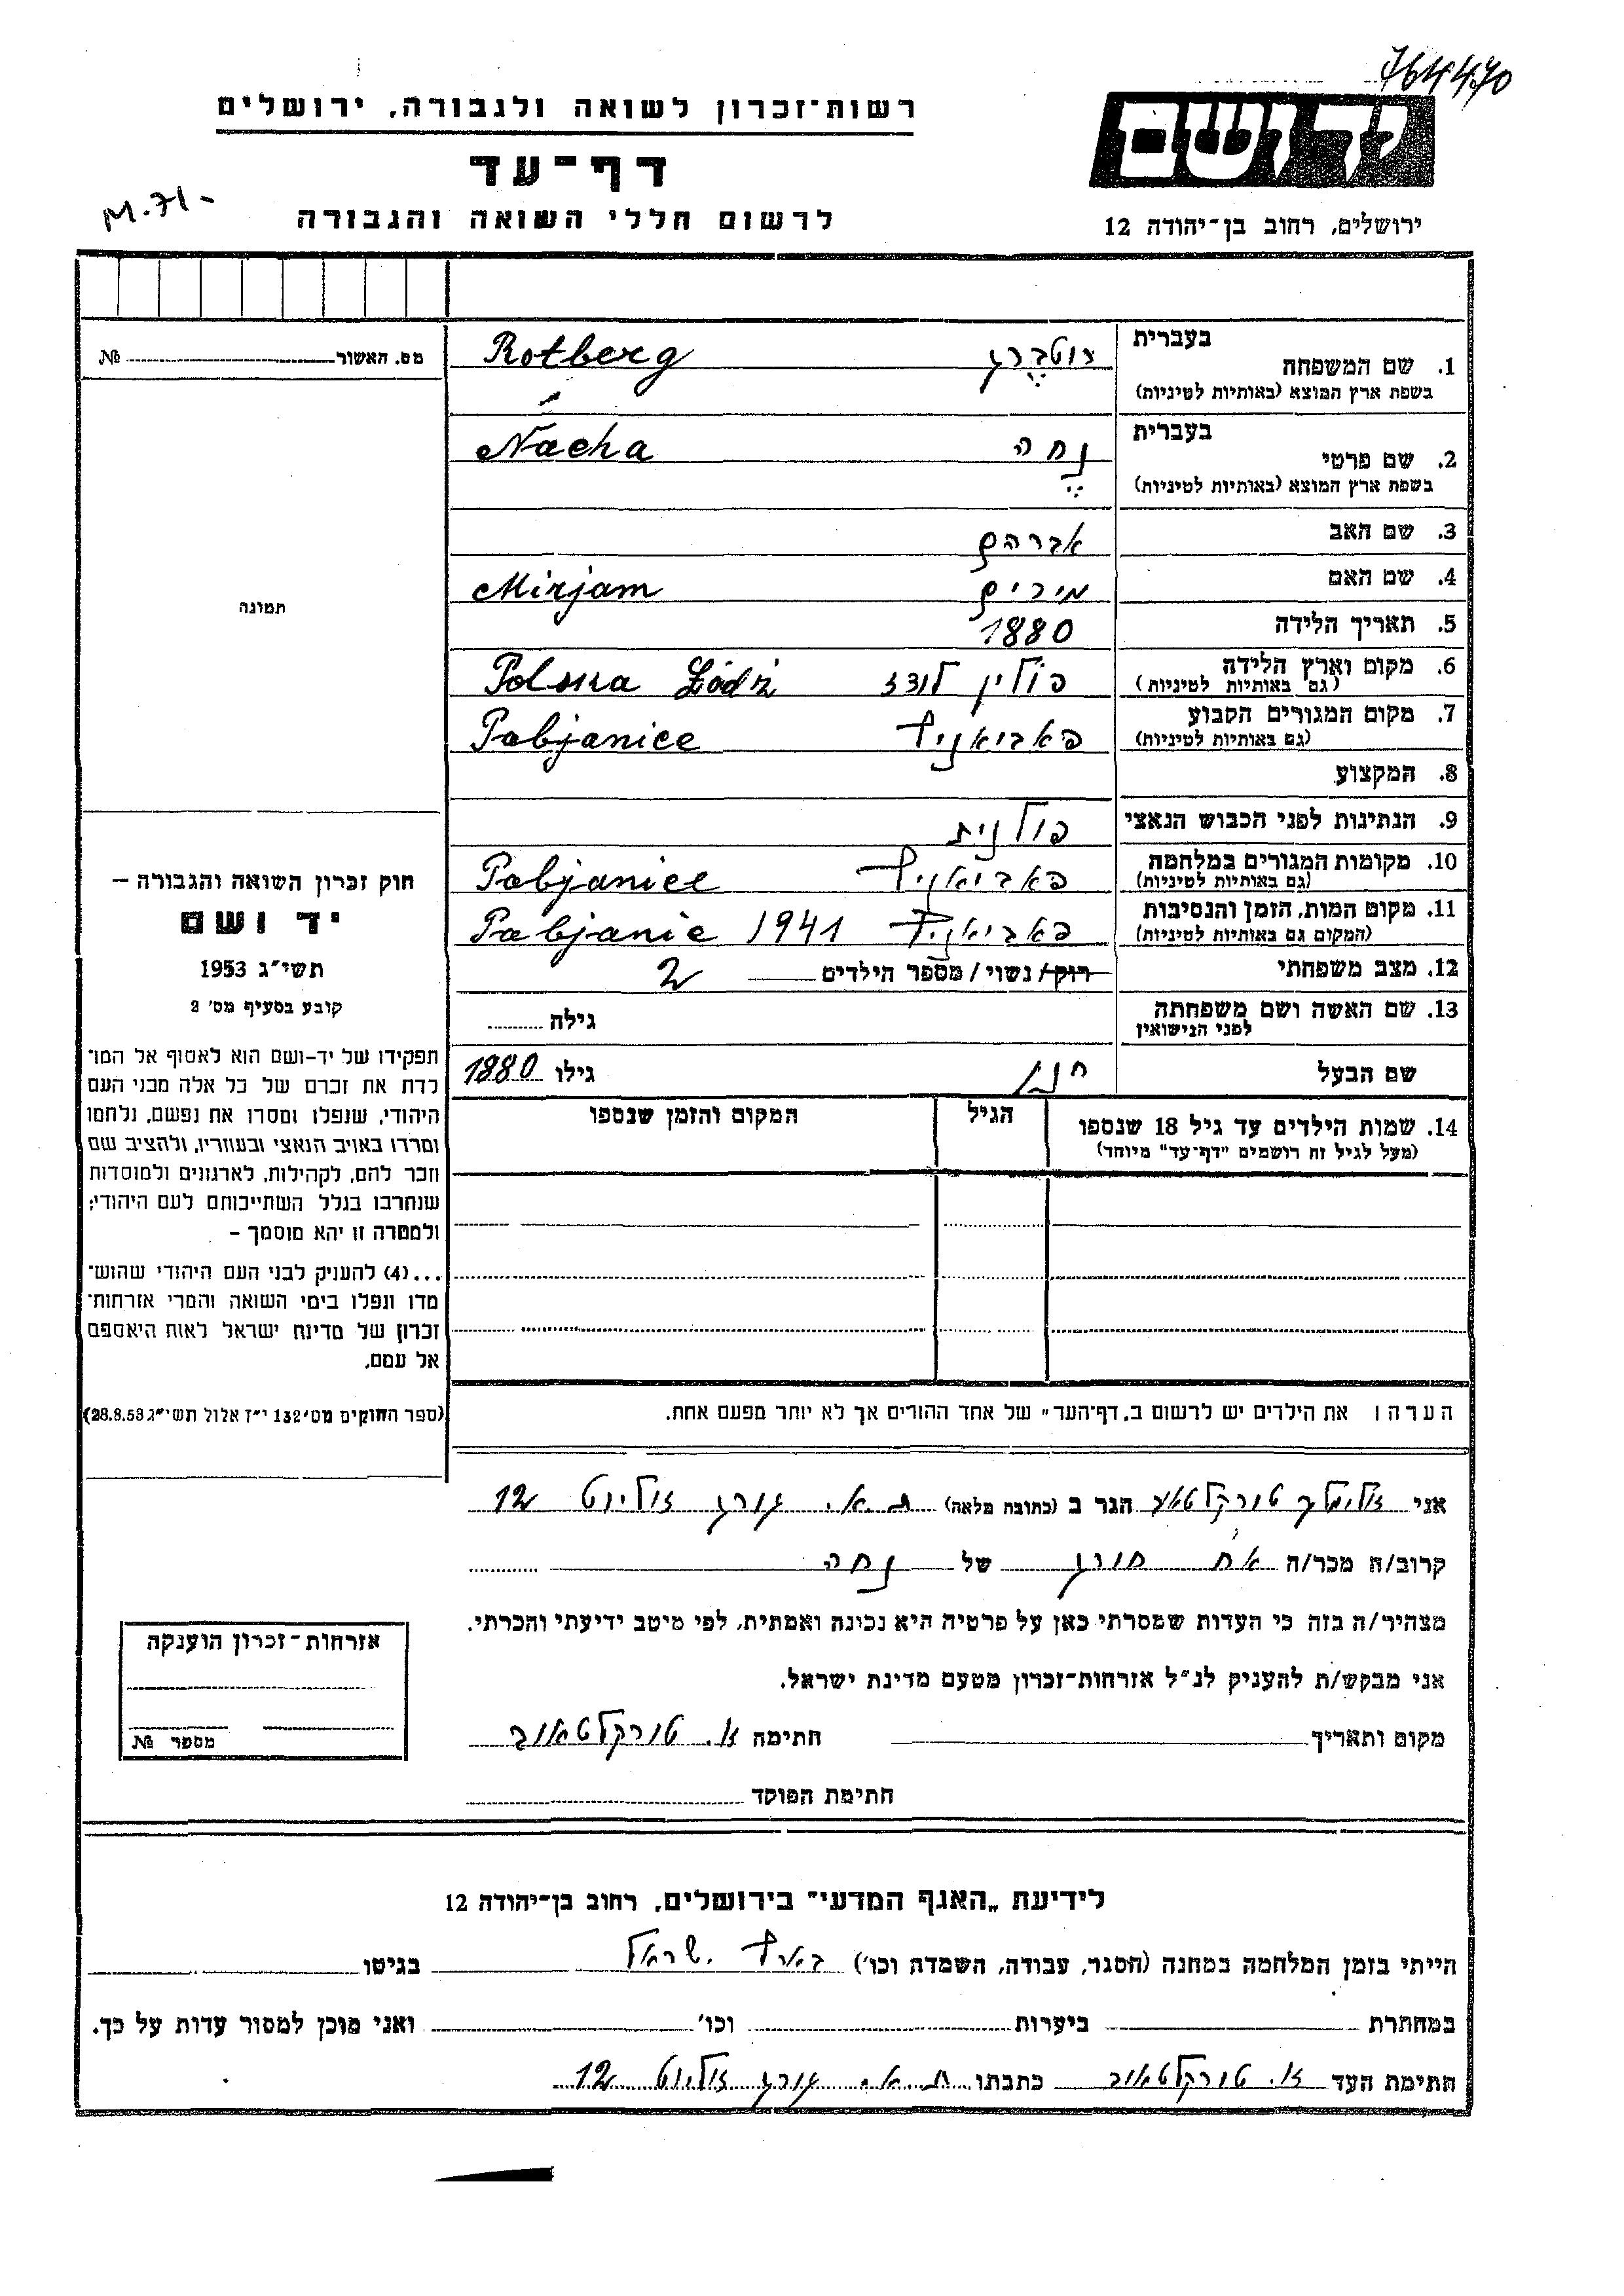 764470
רשות־זכרון לשואה ולגבורה, ירושלים
יד ושם
דף־עד
M.71-
לרשום חללי השואה והגבורה
ירושלים, רחוב בן־יהודה 12
בעברית
1. שם המשפחה רוטברג Rotberg
בשפת ארץ המוצא (באותיות לטיניות)
מס. האשור № 
בעברית
2. שם פרטי נחה Nacha
בשפת ארץ המוצא (באותיות לטיניות)
3. שם האב אברהם
4. שם האם מירים Mirjam
תמונה
5. תאריך הלידה 1880
6. מקום וארץ הלידה פולין לודז Polska Łódź
(גם באותיות לטיניות)
7. מקום המגורים הקבוע פאביאניץ Pabjanice
(גם באותיות לטיניות)
8. המקצוע
9. הנתינות לפני הכבוש הנאצי פולנית
10. מקומות המגורים במלחמה פאביאניץ Pabjanice
(גם באותיות לטיניות)
11. מקום המות, הזמן והנסיבות פאביאניץ Pabjanie 1941
(המקום גם באותיות לטיניות)
12. מצב משפחתי רווק/ נשוי/ מספר הילדים 2
13. שם האשה ושם משפחתה גילה
לפני הנישואין
שם הבעל גילו 1880
14. שמות הילדים עד גיל 18 שנספו הגיל המקום והזמן שנספו
(מעל לגיל זה רושמים "דף־עד" מיוחד)
חוק זכרון השואה והגבורה –
יד ושם
תשי״ג 1953
קובע בסעיף מס' 2
תפקידו של יד-ושם הוא לאסוף אל המו־
לדת את זכרם של כל אלה מבני העם
היהודי, שנפלו ומסרו את נפשם, נלחמו
ומרדו באויב הנאצי ובעוזריו, ולהציב שם
וזכר להם, לקהילות, לארגונים ולמוסדות
שנחרבו בגלל השתייכותם לעם היהודי;
ולמטרה זו יהא מוסמך –
...(4) להעניק לבני העם היהודי שהוש־
מדו ונפלו בימי השואה והמרי אזרחות־
זכרון של מדינת ישראל לאות היאספם
אל עמם.
(ספר החוקים מס' 132 י״ז אלול תשי״ג 28.8.53)
הערה: את הילדים יש לרשום ב„דף־העד" של אחד ההורים אך לא יותר מפעם אחת.
אני הגר ב (כתובת מלאה) ת.א. 12
קרוב/ה מכר/ה אח חורג של נחה
מצהיר/ה בזה כי העדות שמסרתי כאן על פרטיה היא נכונה ואמתית, לפי מיטב ידיעתי והכרתי.
אני מבקש/ת להעניק לנ״ל אזרחות־זכרון מטעם מדינת ישראל.
מקום ותאריך חתימה
חתימת הפוקד
אזרחות־זכרון הוענקה
מספר №
לידיעת „האגף המדעי" בירושלים, רחוב בן־יהודה 12
הייתי בזמן המלחמה במחנה (הסגר, עבודה, השמדה וכו') בארץ ישראל בגיטו
במחתרת ביערות וכו' ואני מוכן למסור עדות על כך.
חתימת העד כתבתו ת.א. 12